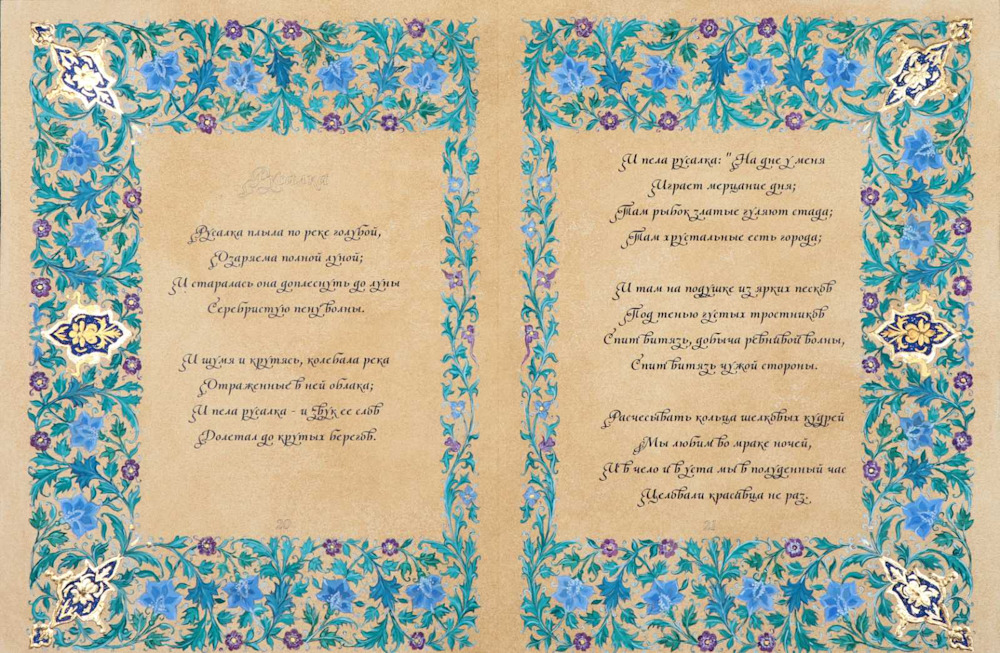 Русалка
Русалка плыла по реке голубой,
Озаряема полной луной;
И старалась она доплеснуть до луны
Серебристую пену волны.
И шумя и крутясь, колебала река
Отраженные в ней облака;
И пела русалка - и звук ее слов
Долетал до крутых берегов.
20
И пела русалка: "На дне у меня
Играет мерцание дня;
Там рыбок златые гуляют стада;
Там хрустальные есть города;
И там на подушке из ярких песков
Под тенью густых тростников
Спит витязь, добыча ревнивой волны,
Спит витязь чужой стороны.
Расчесывать кольца шелковых кудрей
Мы любим во мраке ночей,
И в чело и в уста мы в полуденный час
Целовали красавца не раз.
21